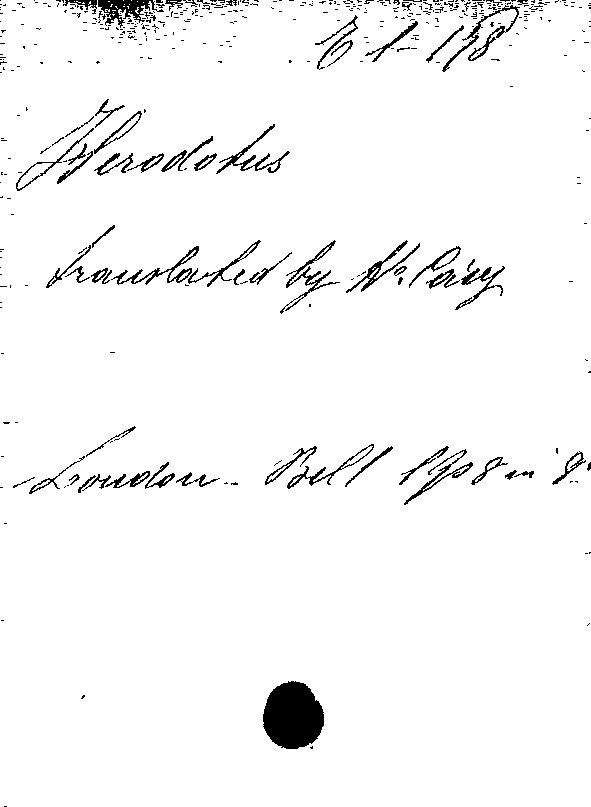 E 1-158
Herodotus
translated by H. Cary
London - Bell 1908 in 8°